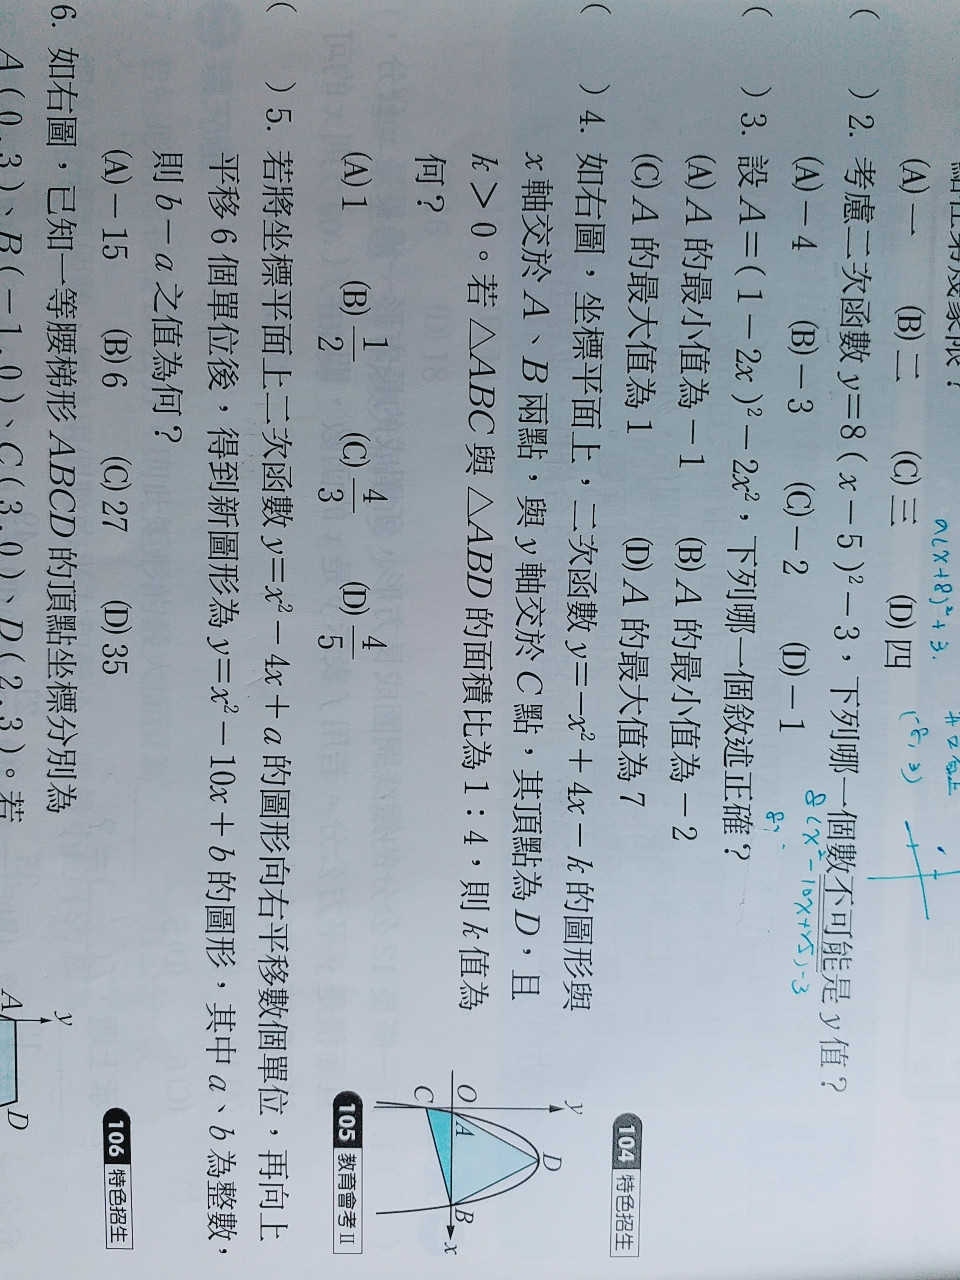 (A) 一 (B) 二 (C) 三 (D) 四
a(x+8)²+3.
(-8, 3)
( ) 2. 考慮二次函數 y=8(x-5)²-3，下列哪一個數不可能是 y 值？
8(x²-10x+25)-3
(A) -4 (B) -3 (C) -2 (D) -1
( ) 3. 設 A=(1-2x)²-2x²，下列哪一個敘述正確？
(A) A 的最小值為 -1 (B) A 的最小值為 -2
(C) A 的最大值為 1 (D) A 的最大值為 7
104 特色招生
( ) 4. 如右圖，坐標平面上，二次函數 y=-x²+4x-k 的圖形與
x 軸交於 A、B 兩點，與 y 軸交於 C 點，其頂點為 D，且
k>0。若 △ABC 與 △ABD 的面積比為 1：4，則 k 值為
何？
(A) 1 (B) 1/2 (C) 4/3 (D) 4/5
y
D
O A B x
C
105 教育會考 II
( ) 5. 若將坐標平面上二次函數 y=x²-4x+a 的圖形向右平移數個單位，再向上
平移 6 個單位後，得到新圖形為 y=x²-10x+b 的圖形，其中 a、b 為整數，
則 b-a 之值為何？
(A) -15 (B) 6 (C) 27 (D) 35
106 特色招生
6. 如右圖，已知一等腰梯形 ABCD 的頂點坐標分別為
A(0,3)、B(-1,0)、C(3,0)、D(2,3)。若
y
A D